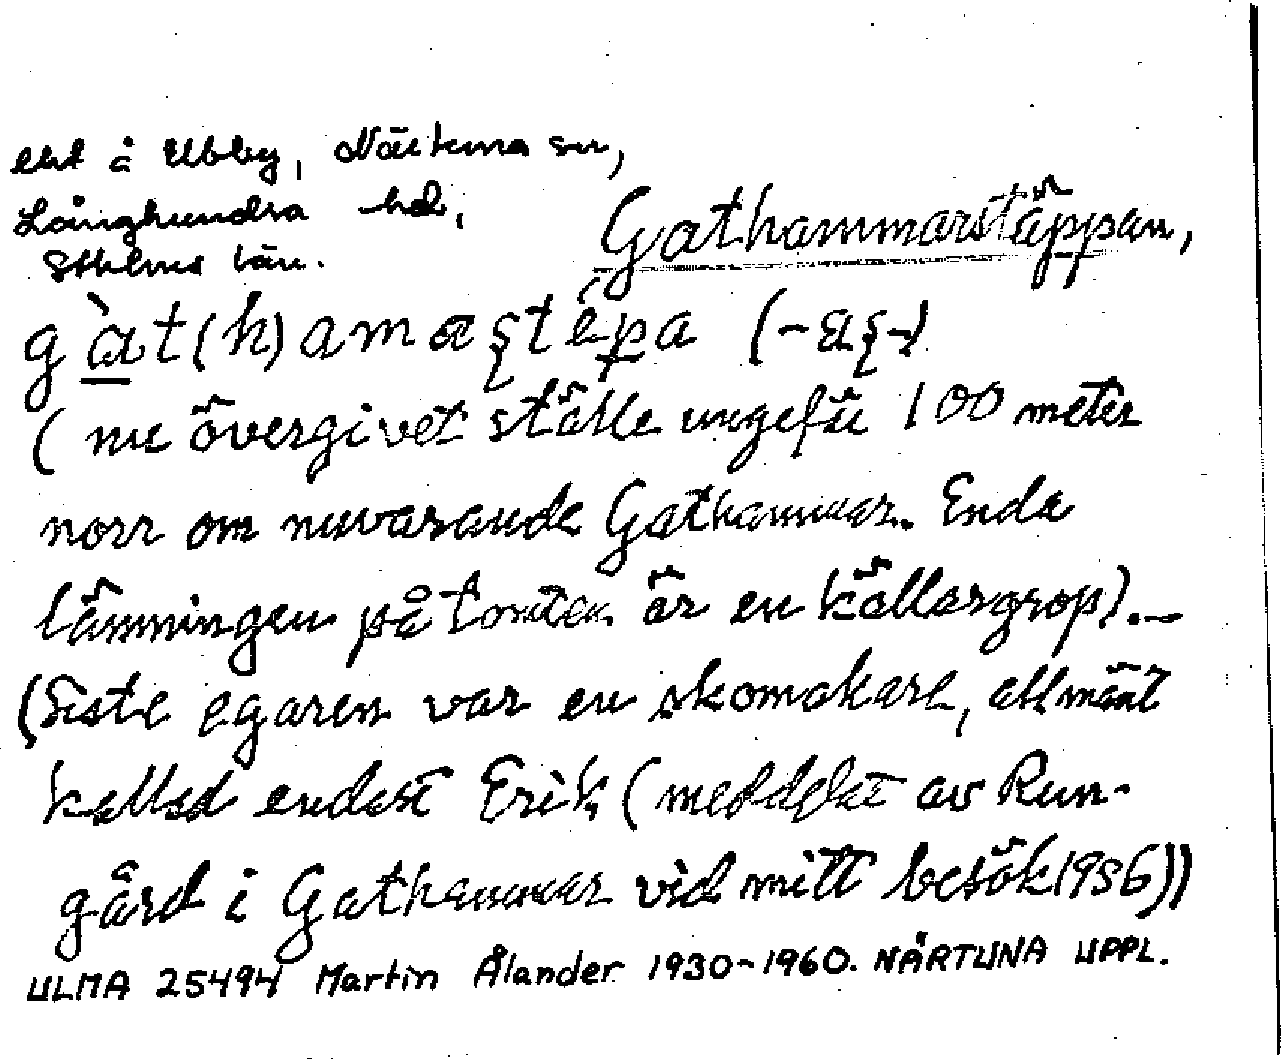 ebt å Ubby, Närtuna sn,
Långhundra hd,
Sthlms län.
Gathammarstäppan,
gàt(h)amaştépa (-aş-)
(nu övergivet ställe ungefär 100 meter
norr om nuvarande Gathammar. Enda
lämningen på tomten är en källargrop).–
(Siste egaren var en skomakare, allmänt
kallad endast Erik (meddelat av Run-
gård i Gathammar vid mitt besök 1956))
ULMA 25494 Martin Ålander 1930-1960. NÄRTUNA UPPL.